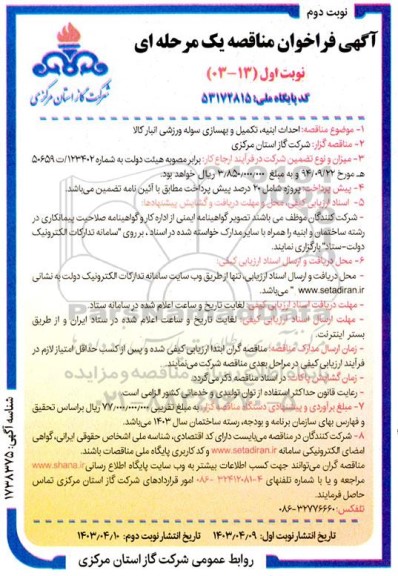 نوبت دوم
آگهی فراخوان مناقصه یک مرحله ای
نوبت اول (۱۳-۰۳)
کد پایگاه ملی: ۵۳۱۷۲۸۱۵
شرکت گاز استان مرکزی
۱- موضوع مناقصه: احداث ابنیه، تکمیل و بهسازی سوله ورزشی انبار کالا
۲- مناقصه گزار: شرکت گاز استان مرکزی
۳- میزان و نوع تضمین شرکت در فرآیند ارجاع کار: برابر مصوبه هیئت دولت به شماره ۱۲۳۴۰۲/ت ۵۰۶۵۹
هـ مورخ ۹۴/۰۹/۲۲ و به مبلغ ۳/۸۵۰/۰۰۰/۰۰۰ ریال خواهد بود.
۴- پیش پرداخت: پروژه شامل ۲۰ درصد پیش پرداخت مطابق با آئین نامه تضمین می‌باشد.
۵- اسناد ارزیابی کیفی، محل و مهلت دریافت و گشایش پیشنهادها:
- شرکت کنندگان موظف می باشند تصویر گواهینامه ایمنی از اداره کار و گواهینامه صلاحیت پیمانکاری در
رشته ساختمان و ابنیه را همراه با سایر مدارک خواسته شده در اسناد، بر روی "سامانه تدارکات الکترونیک
دولت-ستاد" بارگزاری نمایند.
۶- محل دریافت و ارسال اسناد ارزیابی کیفی:
- محل دریافت و ارسال اسناد ارزیابی، تنها از طریق وب سایت سامانه تدارکات الکترونیک دولت به نشانی
www.setadiran.ir " می‌باشد.
- مهلت دریافت اسناد ارزیابی کیفی: لغایت تاریخ و ساعت اعلام شده در سامانه ستاد.
- مهلت ارسال اسناد ارزیابی کیفی: لغایت تاریخ و ساعت اعلام شده در ستاد ایران و از طریق
بستر اینترنت.
- زمان ارسال مدارک مناقصه: مناقصه گران ابتدا ارزیابی کیفی شده و پس از کسب حداقل امتیاز لازم در
فرآیند ارزیابی کیفی در مراحل بعدی مناقصه شرکت می‌نمایند.
- زمان گشایش پاکات: در اسناد مناقصه ذکر می‌گردد.
- رعایت قانون حداکثر استفاده از توان تولیدی و خدماتی کشور الزامی است.
۷- مبلغ برآوردی و پیشنهادی دستگاه مناقصه گزار: به مبلغ تقریبی ۷۷/۰۰۰/۰۰۰/۰۰۰ ریال براساس تحقیق
و فهارس بهای سازمان برنامه و بودجه، رشته ساختمان سال ۱۴۰۳ می‌باشد.
۸- شرکت کنندگان در مناقصه می‌بایست دارای کد اقتصادی، شناسه ملی اشخاص حقوقی ایرانی، گواهی
امضای الکترونیکی سامانه www.setadiran.ir و کد کاربری پایگاه ملی مناقصات باشند.
مناقصه گران می‌توانند جهت کسب اطلاعات بیشتر به وب سایت پایگاه اطلاع رسانی www.shana.ir
مراجعه و یا با شماره تلفنهای ۴-۳۲۴۱۲۰۸۱-۰۸۶ امور قراردادهای شرکت گاز استان مرکزی تماس
حاصل فرمایند.
تلفکس: ۳۲۷۷۶۶۶۰-۰۸۶
تاریخ انتشار نوبت اول: ۱۴۰۳/۰۴/۰۹ تاریخ انتشار نوبت دوم: ۱۴۰۳/۰۴/۱۰
روابط عمومی شرکت گاز استان مرکزی
شناسه آگهی: ۱۷۳۸۳۷۵